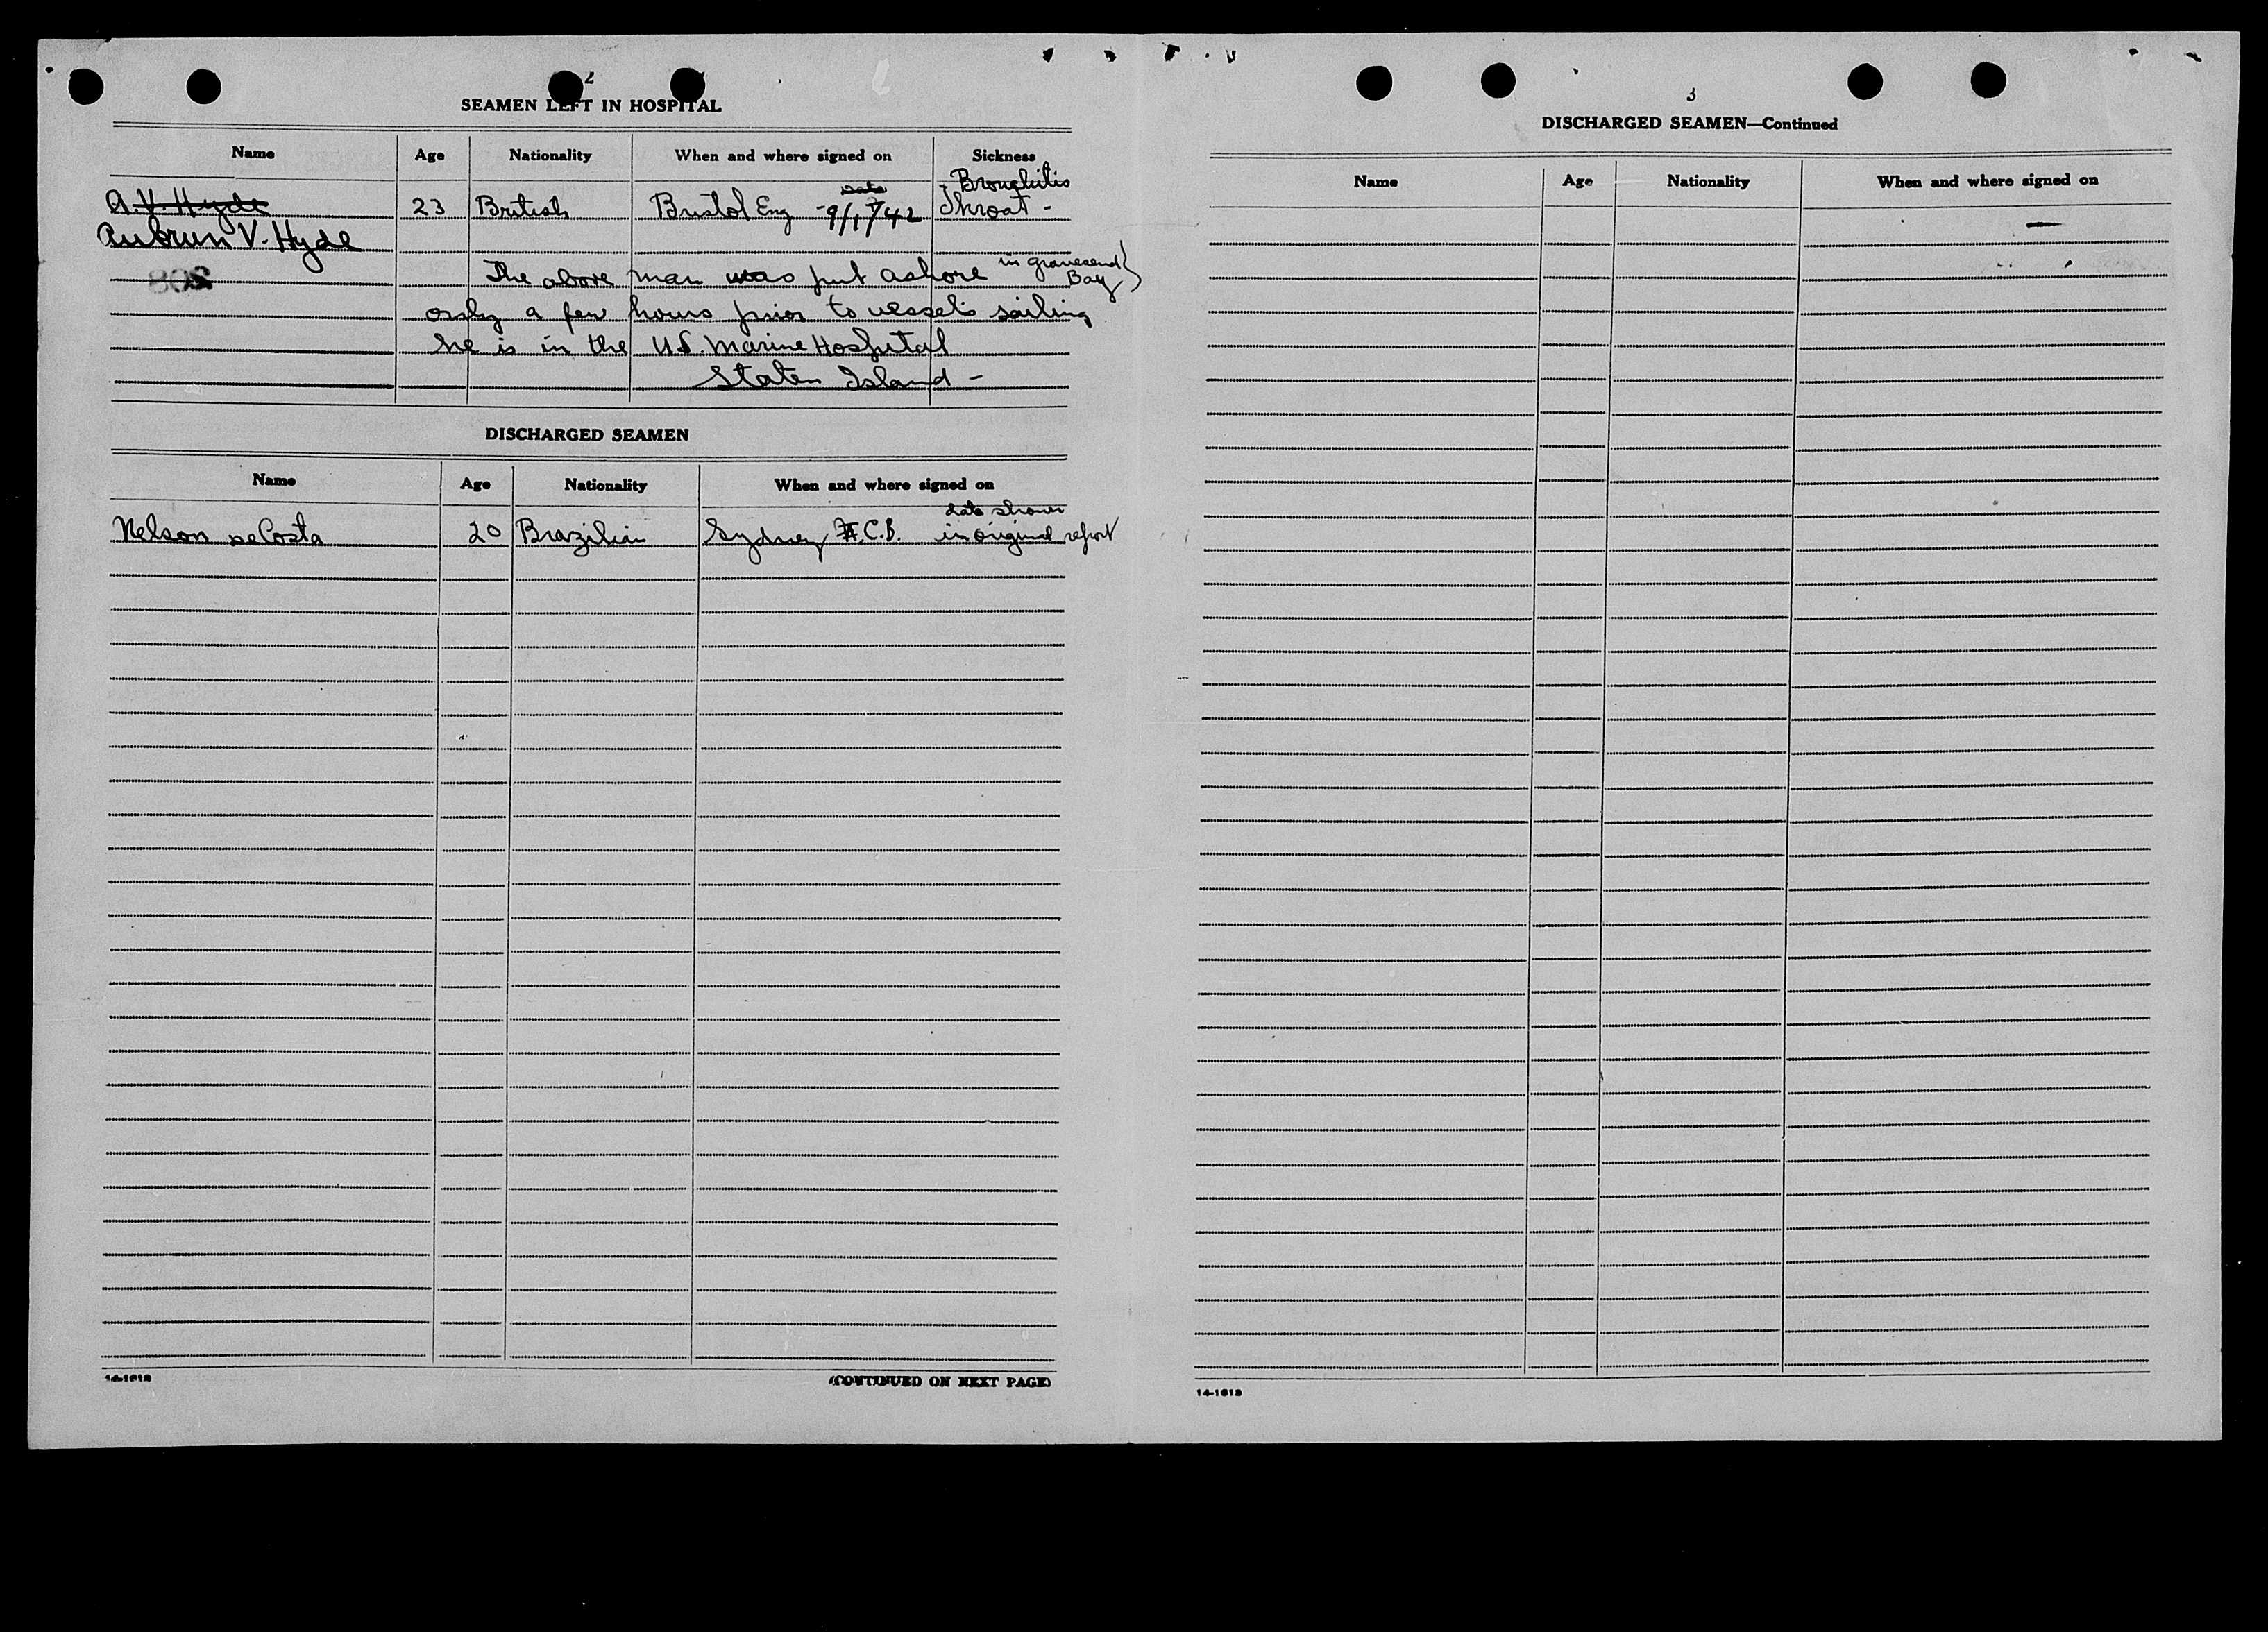 2
SEAMEN LEFT IN HOSPITAL
Name Age Nationality When and where signed on Sickness
A. V. Hyde 23 British Bristol Eng - Date Bronchitis
Throat -
V. Hyde
808
The above man was put ashore in gravesend Bay
only a few hours prior to vessel's sailing
he is in the U.S. Marine Hospital
Staten Island -
DISCHARGED SEAMEN
Name Age Nationality When and where signed on
Nelson deCosta 20 Brazilian Sydney C.B. date shown
in original report
14-1613
(CONTINUED ON NEXT PAGE)
3
DISCHARGED SEAMEN—Continued
Name Age Nationality When and where signed on
14-1613